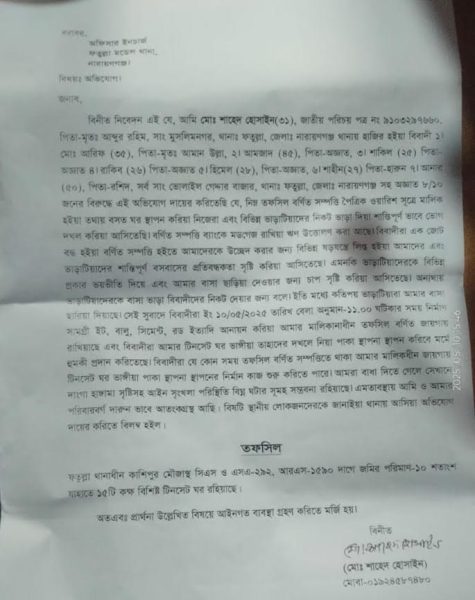 বরাবর,
অফিসার ইনচার্জ
ফতুল্লা মডেল থানা,
নারায়ণগঞ্জ।
বিষয়ঃ অভিযোগ।
জনাব,
বিনীত নিবেদন এই যে, আমি মোঃ শাহেদ হোসাইন(৩১), জাতীয় পরিচয় পত্র নং ৯১০৩২৯৭৬৬০,
পিতা-মৃতঃ আব্দুর রহিম, সাং মুসলিমনগর, থানাঃ ফতুল্লা, জেলাঃ নারায়ণগঞ্জ থানায় হাজির হইয়া বিবাদী ১।
মোঃ আরিফ (৩৫), পিতা-মৃতঃ আমান উল্লা, ২। আমজাদ (৪৫), পিতা-অজ্ঞাত, ৩। শাকিল (২৫) পিতা-
অজ্ঞাত ৪। রাকিব (২৬) পিতা-অজ্ঞাত ৫। হিমেল (২৮), পিতা-অজ্ঞাত, ৬।শাহীন(২৭) পিতা-হারুন ৭। আনার
(৫০), পিতা-রশিদ, সর্ব সাং ভোলাইল গেদ্দার বাজার, থানাঃ ফতুল্লা, জেলাঃ নারায়ণগঞ্জ সহ অজ্ঞাত ৮/১০
জনের বিরুদ্ধে এই অভিযোগ দায়ের করিতেছি যে, নিম্ন তফসিল বর্ণিত সম্পত্তি পৈত্রিক ওয়ারিশ সূত্রে মালিক
হইয়া তথায় বসত ঘর স্থাপন করিয়া নিজেরা এবং বিভিন্ন ভাড়াটিয়াদের নিকট ভাড়া দিয়া শান্তিপূর্ণ ভাবে ভোগ
দখল করিয়া আসিতেছি। বর্ণিত সম্পত্তি ব্যাংকে মডগেজ রাখিয়া ঋন উত্তোলণ করা আছে। বিবাদীরা এক জোট
বদ্ধ হইয়া বর্ণিত সম্পত্তি হইতে আমাদেরকে উচ্ছেদ করার জন্য বিভিন্ন ষড়যন্ত্রে লিপ্ত হইয়া আমাদের এবং
ভাড়াটিয়াদের শান্তিপূর্ণ বসবাসের প্রতিবন্ধকতা সৃষ্টি করিয়া আসিতেছে। এমনকি ভাড়াটিয়াদেরকে বিভিন্ন
প্রকার ভয়ভীতি দিয়ে এবং আমার বাসা ছাড়িয়া দেওয়ার জন্য চাপ সৃষ্টি করিয়া আসিতেছে। অন্যথায়
ভাড়াটিয়াদেরকে বাসা ভাড়া বিবাদীদের নিকট দেয়ার জন্য বলে। ইতি মধ্যে কতিপয় ভাড়াটিয়ারা আমার বাসা
ছাড়িয়া দিয়াছে। সেই সুবাদে বিবাদীরা ইং ১০/০৫/২০২৫ তারিখ বেলা অনুমান-১১.০০ ঘটিকার সময় নির্মাণ
সামগ্রী ইট, বালু, সিমেন্ট, রড ইত্যাদি আনায়ন করিয়া আমার মালিকানাধীন তফসিল বর্ণিত জায়গায়
রাখিয়াছে এবং বিবাদীরা আমার টিনসেট ঘর ভাঙ্গীয়া তাহাদের দখলে নিয়া পাকা স্থাপনা স্থাপন করিবে মর্মে
হুমকী প্রদান করিতেছে। বিবাদীরা যে কোন সময় তফসিল বর্ণিত সম্পত্তিতে থাকা আমার মালিকধীন জায়গায়
টিনসেট ঘর ভাঙ্গীয়া পাকা স্থাপনা স্থাপনের নির্মান কাজ শুরু করিতে পারে। আমরা বাধা দিতে গেলে সেখানে
দাংগা হাঙ্গামা সৃষ্টিসহ আইন সৃংখলা পরিস্থিতি বিঘ্ন ঘটার সূমহ সম্ভবনা রহিয়াছে। এমতাবস্থায় আমি ও আমার
পরিবারবর্গ দারুন ভাবে আতংকগ্রস্থ আছি। বিষটি স্থানীয় লোকজনদেরকে জানাইয়া থানায় আসিয়া অভিযোগ
দায়ের করিতে বিলম্ব হইল।
তফসিল
ফতুল্লা থানাধীন কাশিপুর মৌজাস্থ সিএস ও এসএ-২৯২, আরএস-১৫৯০ দাগে জমির পরিমান-১০ শতাংশ
যাহাতে ১৫টি কক্ষ বিশিষ্ট টিনসেট ঘর রহিয়াছে।
অতএবঃ প্রার্থনা উল্লেখিত বিষয়ে আইনগত ব্যবস্থা গ্রহণ করিতে মর্জি হয়।
বিনীত
মোঃ শাহেদ হোসাইন
(মোঃ শাহেদ হোসাইন)
মোবা-০১৯২৪৫৮৭৪৮০